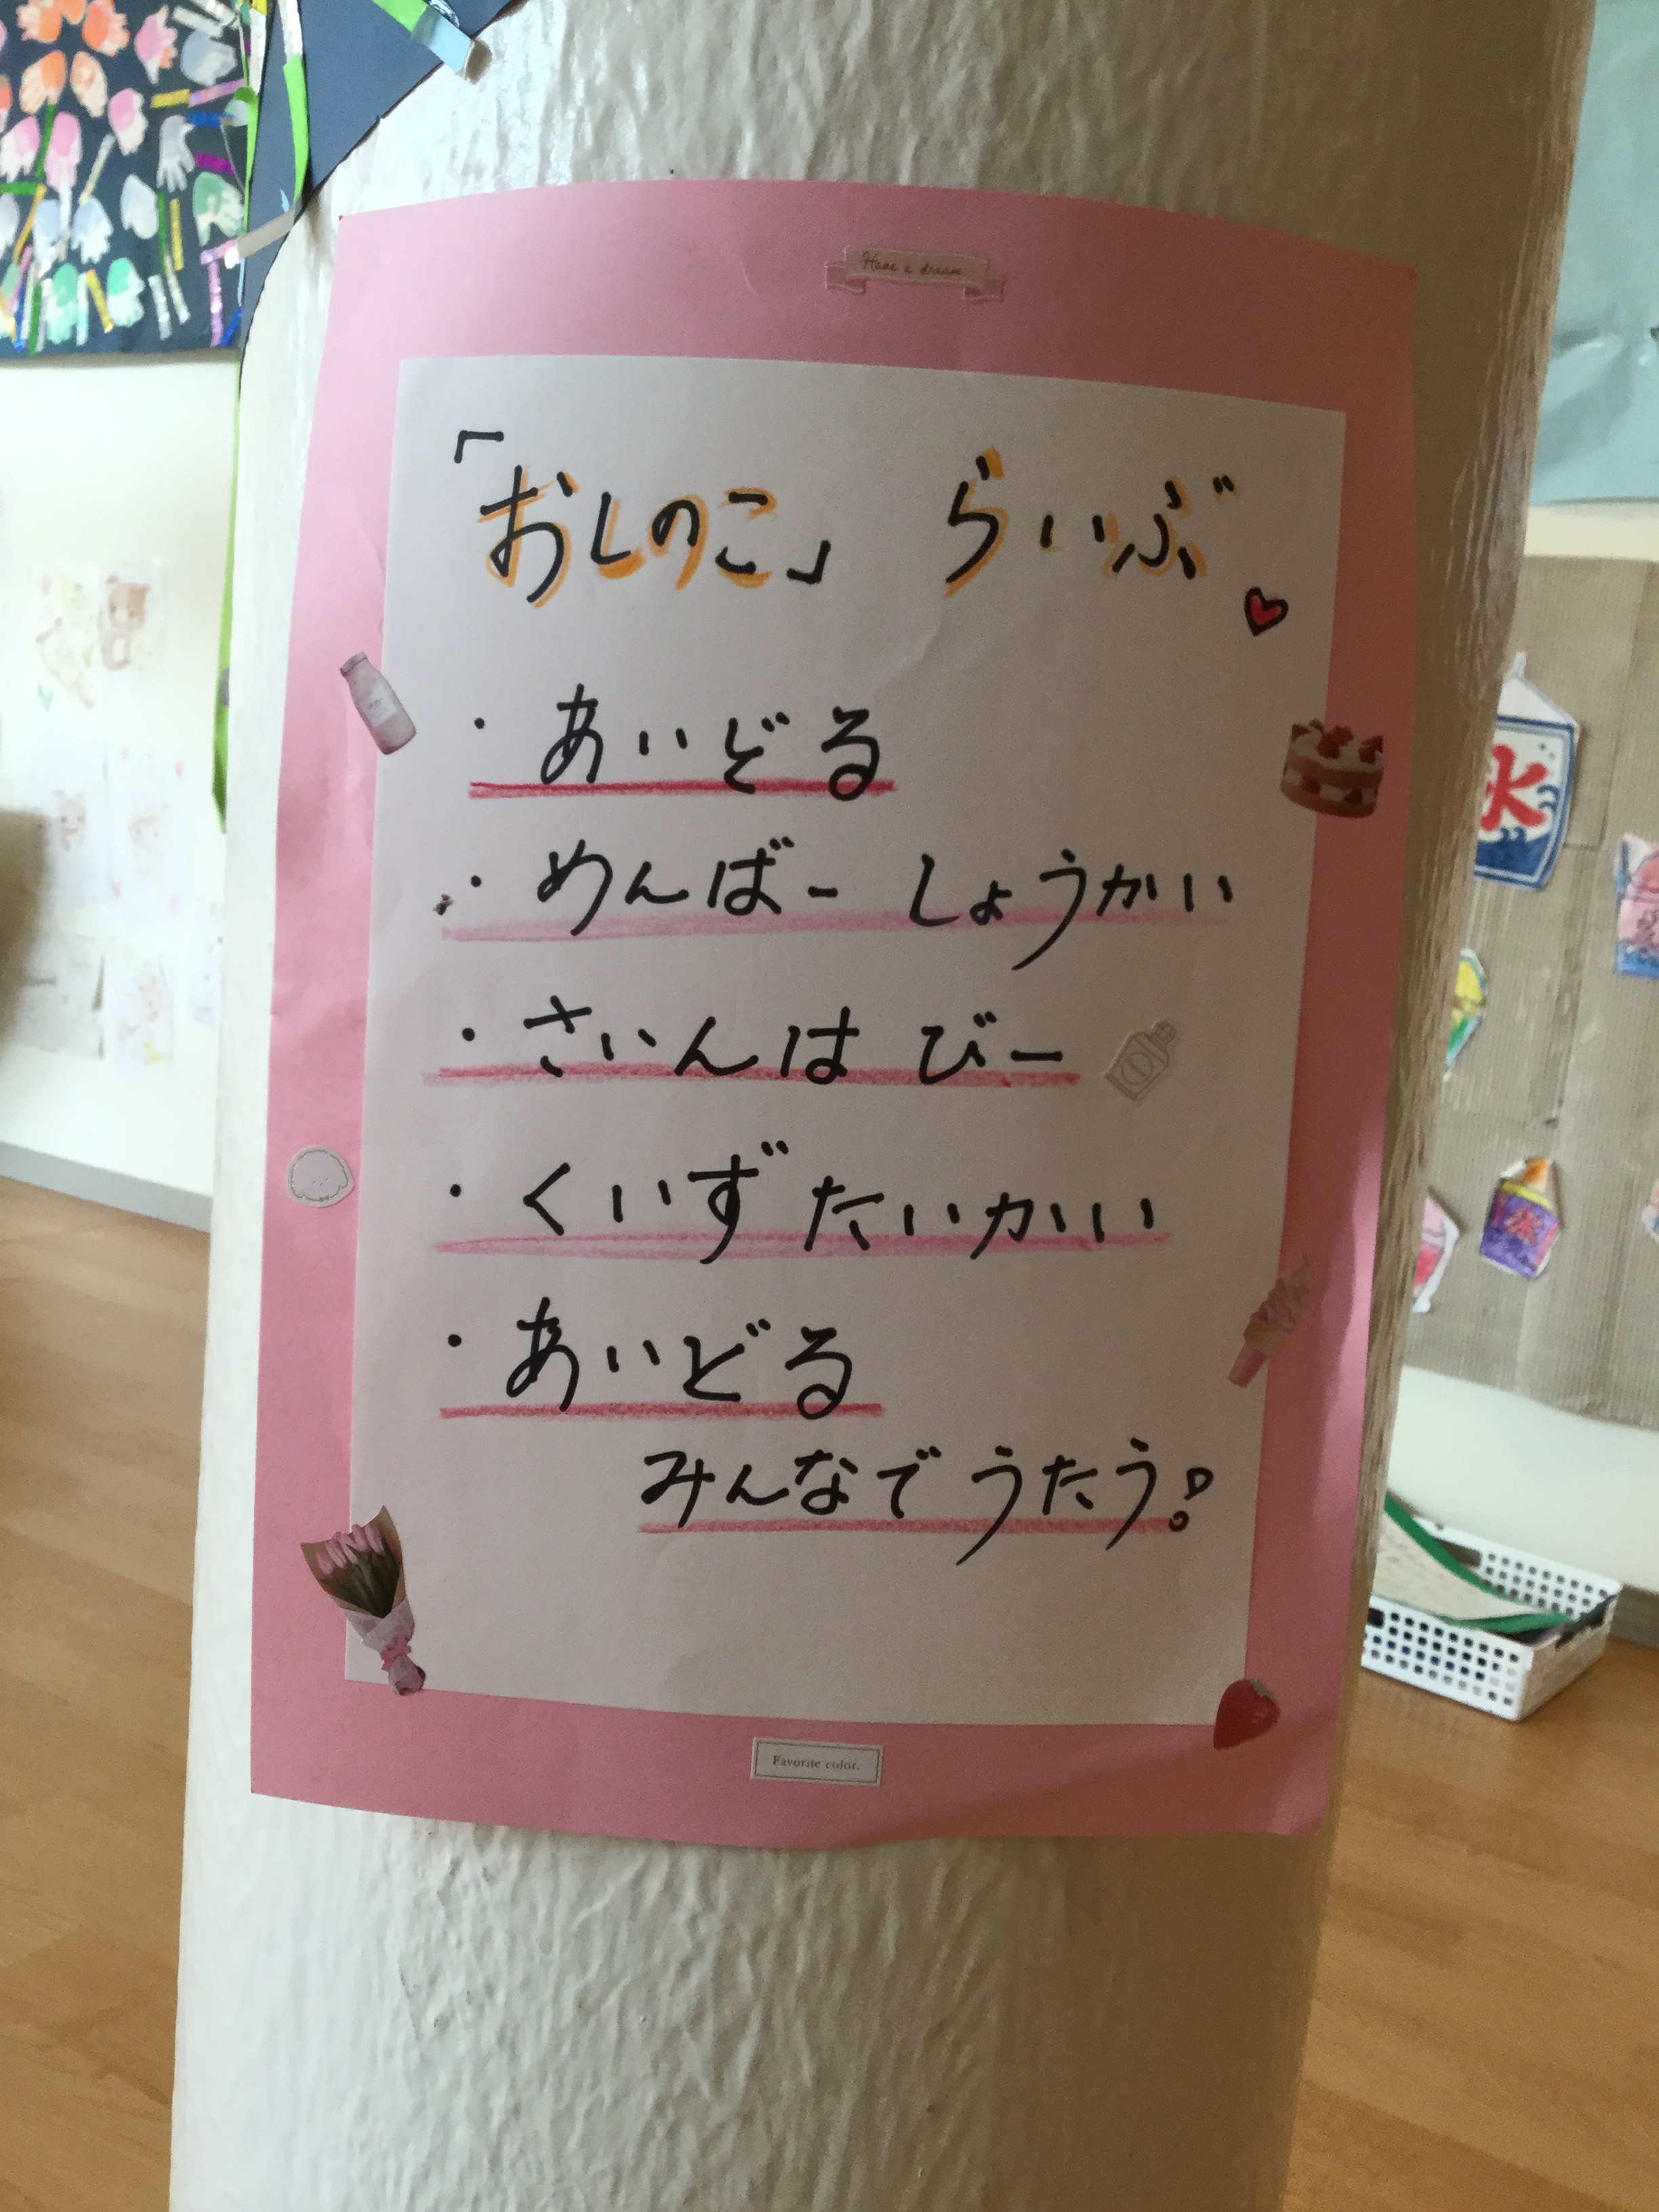 Have a dream
「おしのこ」 らいぶ
・あいどる
・めんばー しょうかい
・さいんは びー
・くいず たいかい
・あいどる
みんなで うたう!
Favorite color.
氷
氷